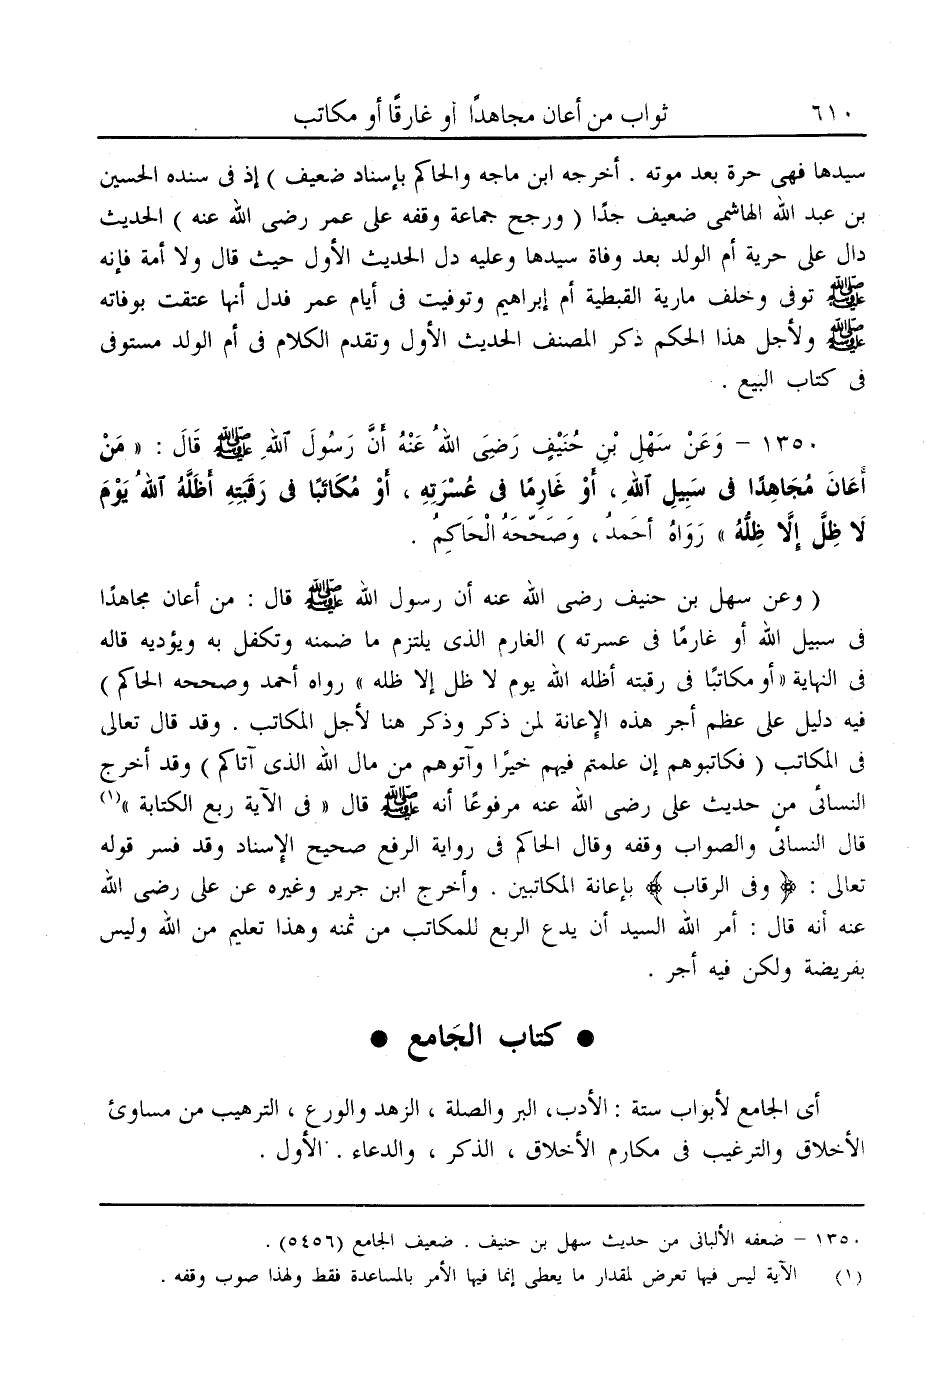 ٦١٠ ثواب من أعان مجاهدًا أو غارقًا أو مكاتب
سيدها فهى حرة بعد موته . أخرجه ابن ماجه والحاكم بإسناد ضعيف ) إذ فى سنده الحسين
بن عبد الله الهاشمى ضعيف جدًا ( ورجح جماعة وقفه على عمر رضى الله عنه ) الحديث
دال على حرية أم الولد بعد وفاة سيدها وعليه دل الحديث الأول حيث قال ولا أمة فإنه
ﷺ توفى وخلف مارية القبطية أم إبراهيم وتوفيت فى أيام عمر فدل أنها عتقت بوفاته
ﷺ ولأجل هذا الحكم ذكر المصنف الحديث الأول وتقدم الكلام فى أم الولد مستوفى
فى كتاب البيع .
١٣٥٠ – وَعَنْ سَهْلِ بْنِ حُنَيْفٍ رَضِىَ اللهُ عَنْهُ أَنَّ رَسُولَ ٱللهِ ﷺ قَالَ : « مَنْ
أَعَانَ مُجَاهِدًا فى سَبِيلِ ٱللهِ ، أَوْ غَارِمًا فى عُسْرَتِهِ ، أَوْ مُكَاتَبًا فى رَقَبَتِهِ أَظَلَّهُ ٱللهُ يَوْمَ
لَا ظِلَّ إِلَّا ظِلُّهُ » رَوَاهُ أحَمدُ ، وَصَحّحَهُ الْحَاكِمُ .
( وعن سهل بن حنيف رضى الله عنه أن رسول الله ﷺ قال : من أعان مجاهدًا
فى سبيل الله أو غارمًا فى عسرته ) الغارم الذى يلتزم ما ضمنه وتكفل به ويؤديه قاله
فى النهاية «أو مكاتبًا فى رقبته أظله الله يوم لا ظل إلا ظله » رواه أحمد وصححه الحاكم )
فيه دليل على عظم أجر هذه الإعانة لمن ذكر وذكر هنا لأجل المكاتب . وقد قال تعالى
فى المكاتب ( فكاتبوهم إن علمتم فيهم خيرًا وآتوهم من مال الله الذى آتاكم ) وقد أخرج
النسائى من حديث على رضى الله عنه مرفوعًا أنه ﷺ قال « فى الآية ربع الكتابة »(١)
قال النسائى والصواب وقفه وقال الحاكم فى رواية الرفع صحيح الإسناد وقد فسر قوله
تعالى : ﴿ وفى الرقاب ﴾ بإعانة المكاتبين . وأخرج ابن جرير وغيره عن على رضى الله
عنه أنه قال : أمر الله السيد أن يدع الربع للمكاتب من ثمنه وهذا تعليم من الله وليس
بفريضة ولكن فيه أجر .
● كتاب الجَامع ●
أى الجامع لأبواب ستة : الأدب، البر والصلة ، الزهد والورع ، الترهيب من مساوئ
الأخلاق والترغيب فى مكارم الأخلاق ، الذكر ، والدعاء . الأول .
١٣٥٠ – ضعفه الألبانى من حديث سهل بن حنيف . ضعيف الجامع (٥٤٥٦) .
(١) الآية ليس فيها تعرض لمقدار ما يعطى إنما فيها الأمر بالمساعدة فقط ولهذا صوب وقفه .